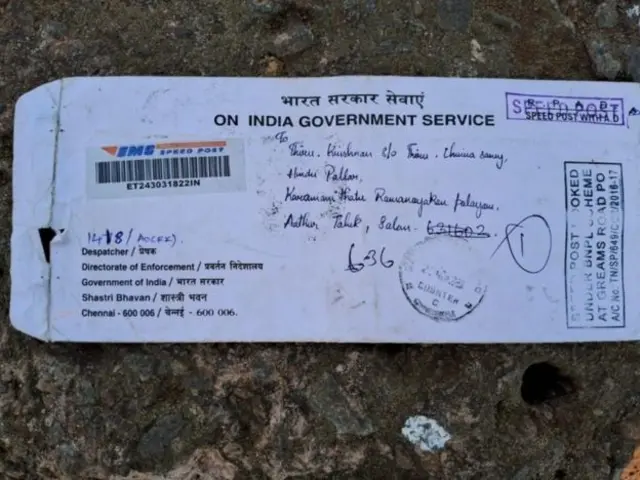 भारत सरकार सेवाएं
ON INDIA GOVERNMENT SERVICE
SPEED POST WITH A D
EMS
SPEED POST
ET243031822IN
To
Thiru. Krishnan S/o Thiru. Chinna samy,
Hindu Pallar,
Ramanayaken palayam,
Aathur Taluk, Salem 631602.
636
1
COUNTER
C
Despatcher / प्रेषक
Directorate of Enforcement / प्रवर्तन निदेशालय
Government of India / भारत सरकार
Shastri Bhavan / शास्त्री भवन
Chennai - 600 006 / चेन्नई - 600 006.
SPEED POST BOOKED
UNDER BNPL SCHEME
AT GREAMS ROAD PO